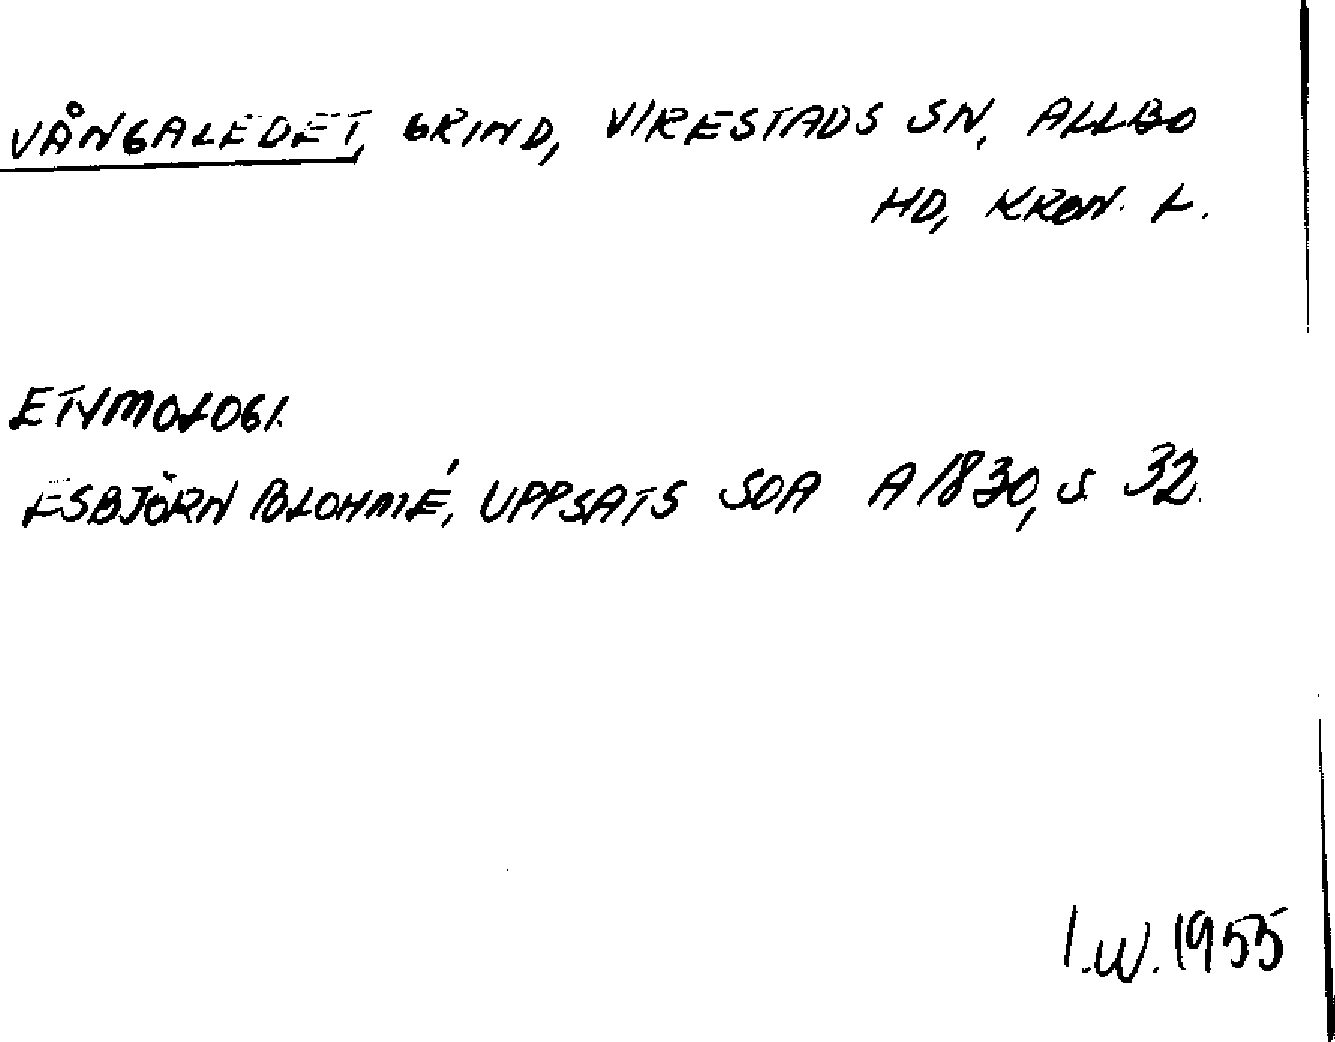 VÅNGALEDET, GRIND, VIRESTADS SN, ALLBO
HD, KRON. L.
ETYMOLOGI.
ESBJÖRN BLOHMÉ, UPPSATS SOA A 1830, S 32.
I.W. 1955